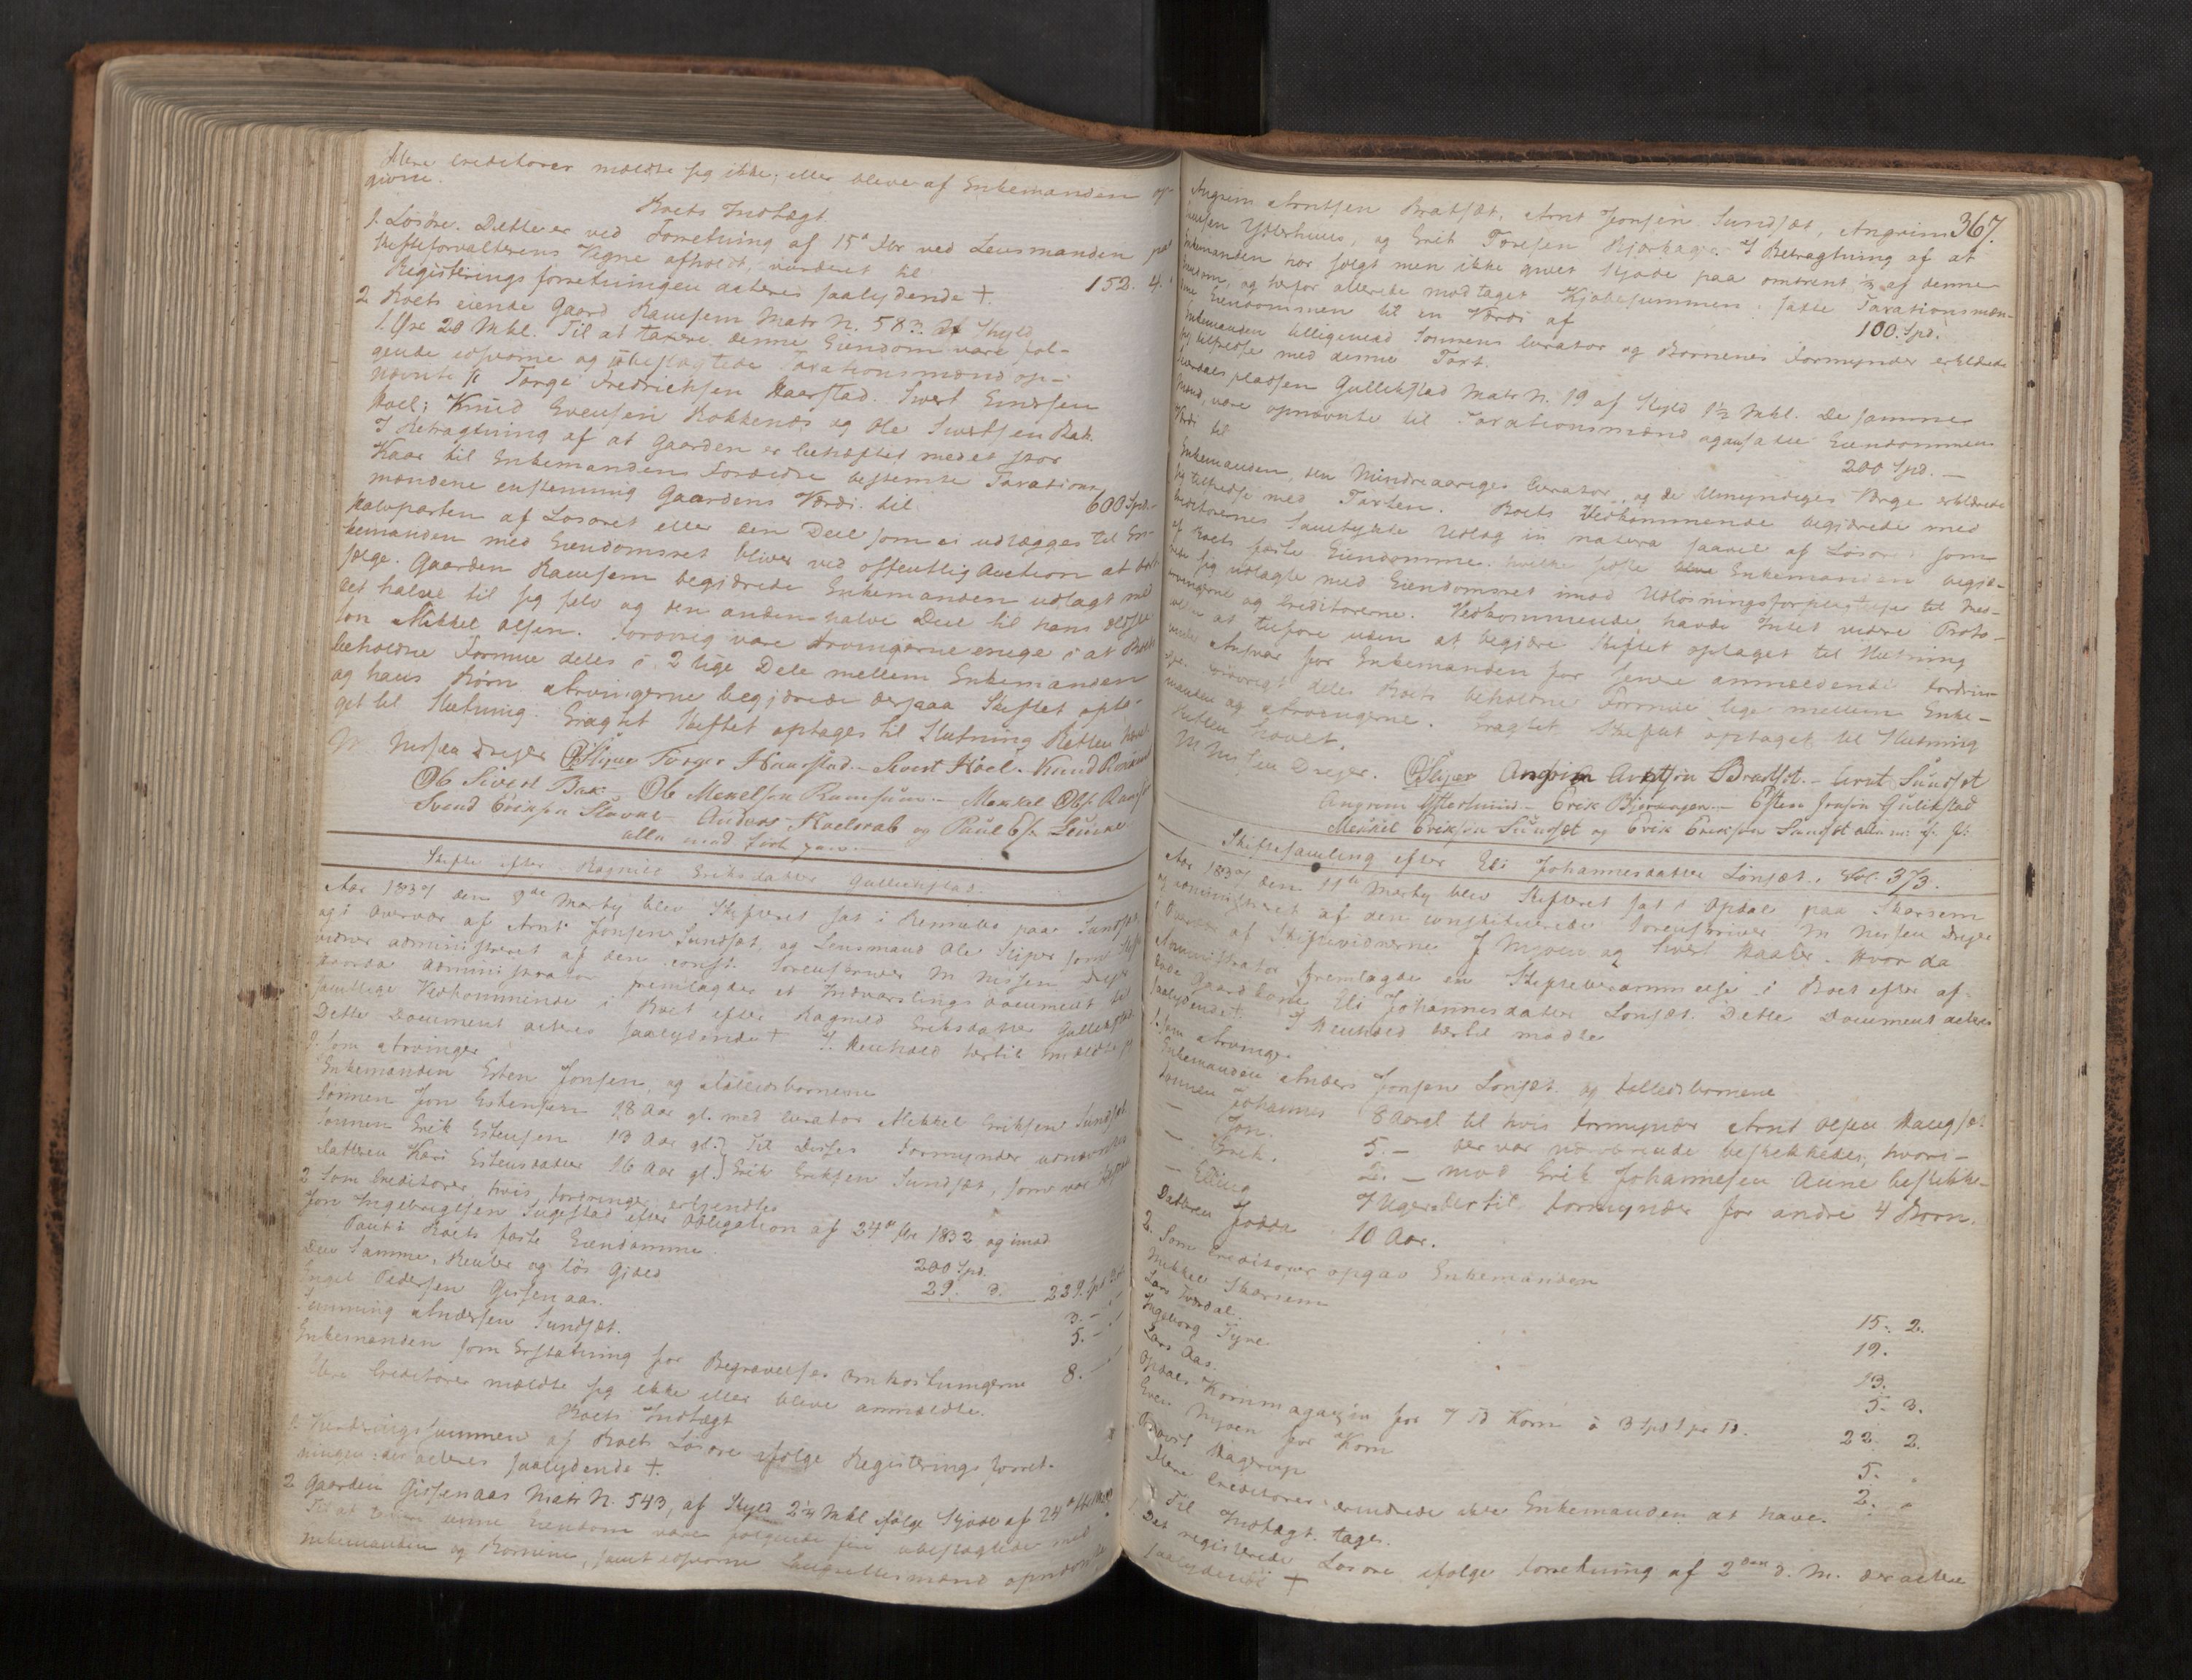 flere Creditorer meldte sig ikke, eller bleve af Enkemanden op-
givne.
Boets Indtægt
1. Løsøre. Dette er ved Forretning af 15de ved Lensmanden paa
Skifteforvalterens Vegne afholdt, vurderet til
Registeringsforretningen acteres saalydende †. 152. 4.
2 Boets eiende Gaard Ramsem Matr N. 583. Af Skyld
1 Øre 20 Mkl. Til at taxere denne Eiendom vare føl-
gende edsvorne og ubeslægtede Taxationsmænd op-
nævnte Torge Fredrichsen Haarstad. Sivert Hoel; Knud Evensen Rokkenæs og Ole Sivertsen Bak.
I Betragtning af at Gaarden er behæftet med et stor
Kaar til Enkemandens Forældre bestemte Taxations-
mændene enstemmig Gaardens Værdi til 600 Spd.
Halvparten af Løsøret eller den Deel som ei udlægges til En-
kemanden med Eiendomsret bliver ved offentlig Auction at bort-
sælge. Gaarden Ramsem begjærede Enkemanden udlagt med
det halve til sig selv og den anden halve Deel til hans ældste
søn Mikkel Olsen. Forøvrig vare Arvingerne enige i at Boets
beholdne Formue deles i 2 lige Dele mellem Enkemanden
og hans Børn. Arvingerne begjærede derpaa Skiftet opta-
get til Slutning. Eragtet Skiftet optages til Slutning Retten hævet
M Nissen Dreyer O Stiper Torger Haarstad. Sivert Hoel. Knud
Ole Sivert Bak. Ole Mekelsen Ramsum. Mekkel Ols. Ramse
Svend Eriksen Anders Kaelsrab og Paul Es.
alle med ført pen.
Skifte efter Ragnild Eriksdatter Gullikstad.
Aar 1837 den 9de Marty blev Skifteret sat i Rennebo paa Sundsæt,
og i Overvær af Arnt Jonsen Sundsæt, og Lensmand Ole Stiper som Skifte
vidner administreret af den const. Sorenskriver M Nissen Dreyer
Hvorda Administrator fremlagde et Indvarslings Document til
samtlige Vedkommende i Boet efter Ragnild Eriksdatter Gullikstad
Dette Document acteres saalydende † I Henhold hertil meldte sig
1. Som Arvinger
Enkemanden Esten Jonsen, og Fælledsbørnene
Sønnen Jon Estensen 18 Aar gl. med Curator Mikkel Eriksen Sundsæt.
Sønnen Erik Estensen 13 Aar gl. } Til Disses Formynder udnævntes
Datteren Kari Estensdatter 16 Aar gl. } Erik Eriksen Sundsæt, som var tilstede
2 Som Creditorer hvis fordringer erkjendtes
Jon Ingebrigtsen efter Obligation af 24de 1832 og imod
Pant i Boets faste Eiendomme 200 Spd.
Den Samme, Renter og løs Gjæld 29. 3. 239. Spd
Engel Pedersen Gissenaas. 3. -
Summing Andersen Sundsæt. 5. -
Enkemanden som Erstatning for Begravelses omkostningerne 8. -
flere Creditorer meldte sig ikke eller bleve anmeldte.
Boets Indtægt
1. Vurderingssummen af Boets Løsøre ifølge Registeringsforret-
ningen: der acteres saalydende †.
2 Gaarden Gissenaas Matr N. 543, af Skyld 2 1/4 Mkl ifølge Skjøde af 24de
Til at taxere denne Eiendom vare følgende fire ubeslægtede med
Enkemanden og Børnene, samt edsvorne Laugrettesmænd opnævnte
367.
Angrim Arntsen Bratsæt, Arnt Jonsen Sundsæt, Angrim
Ytterhuus, og Erik Toresen Bjørkager. I Betragtning af at
Enkemanden har solgt men ikke givet Skjøde paa omtrent 1/3 af denne
Eiendom, og herfor allerede modtaget Kjøbesummen; satte Taxationsmæn-
dene Eiendommen til en Værdi af 100 Spd.
Enkemanden tilligemed Sønnens Curator og Børnenes Formynder erklærede
sig tilfredse med denne Taxt.
pladsen Gullikstad Matr N. 19 af Skyld 1 1/2 Mkl. De samme
Mænd, vare opnævnte til Taxationsmænd ogansatte Eiendommens
Værdi til 200 Spd. -
Enkemanden, den Mindreaariges Curator, og de Umyndiges Værge erklærede
sig tilfredse med Taxten. Boets Vedkommende begjærede med
Creditorernes Samtykke Udlæg in natura saavel af Løsøre som
af Boets faste Eiendomme. hvilke sidste Enkemanden begjæ-
rede sig udlagte med Eiendomsret imod Udløsningsforpligtelse til Med-
arvingerne og Creditorerne. Vedkommende havde Intet videre Proto-
collen at tilføre uden at begjære Skiftet optaget til Slutning
under Ansvar for Enkemanden for senere anmeldende Fordrin-
ger. Forøvrigt deles Boets beholdne Formue lige mellem Enke-
manden og Arvingerne. Eragtet Skiftet optaget til Slutning
Retten hævet.
M Nissen Dreyer. O Stiper Angrim Arntsen Bradset. - Arnt Sundset
Angrim Ytterhuus - Erik Bjerkager - Esten Jonsen Gulikstad
Mekkel Eriksen Sundsæt og Erik Eriksen Sundsæt alle m: f. P:
Skiftesamling efter Eli Johannesdatter Lonsæt. Fol. 373.
Aar 1837 den 11te Marty blev Skifteret sat i Opdal paa Skarsem
og administreret af den constituerede Sorenskriver M Nissen Dreyer
i Overvær af Skiftevidnerne J Mjøen og Sivert Haaker. Hvor da
Administrator fremlagde en Skifteberammelse i Boet efter af-
døde Gaardkone Eli Johannesdatter Lonsæt. Dette Document acteres
saalydende †. I Henhold hertil mødte
1. Som Arvinger
Enkemanden Anders Jonsen Lonsæt. og Fælledsbørnene
Sønnen Johannes 8 Aar gl til hvis Formynder Arnt Olsen Haugset
- Jon. 5. - der var nærværende beskikkedes; hvori-
- Erik. 2. - mod Erik Johannesen Aune beskikke-
- Elling 7 Uger dertil Formynder for andre 4 Børn.
Datteren 10 Aar.
2. Som Creditorer opgav Enkemanden
Mikkel Skarsem 15. 2.
Lars Tverdal. 19.
Ingeborg 13.
Lars Aas. 5. 3.
Opdals Kornmagazin for 7 Td Korn a 3 Spd 1 pr Td. 22. 2.
Even Mjøen for Korn 5. "
Hagerup 2. "
flere Creditorer erindrede ikke Enkemanden at have.
Til Indtægt tages.
1. Det registrerede Løsøre ifølge Forretning af 2den d. M. der actere
saalydende †